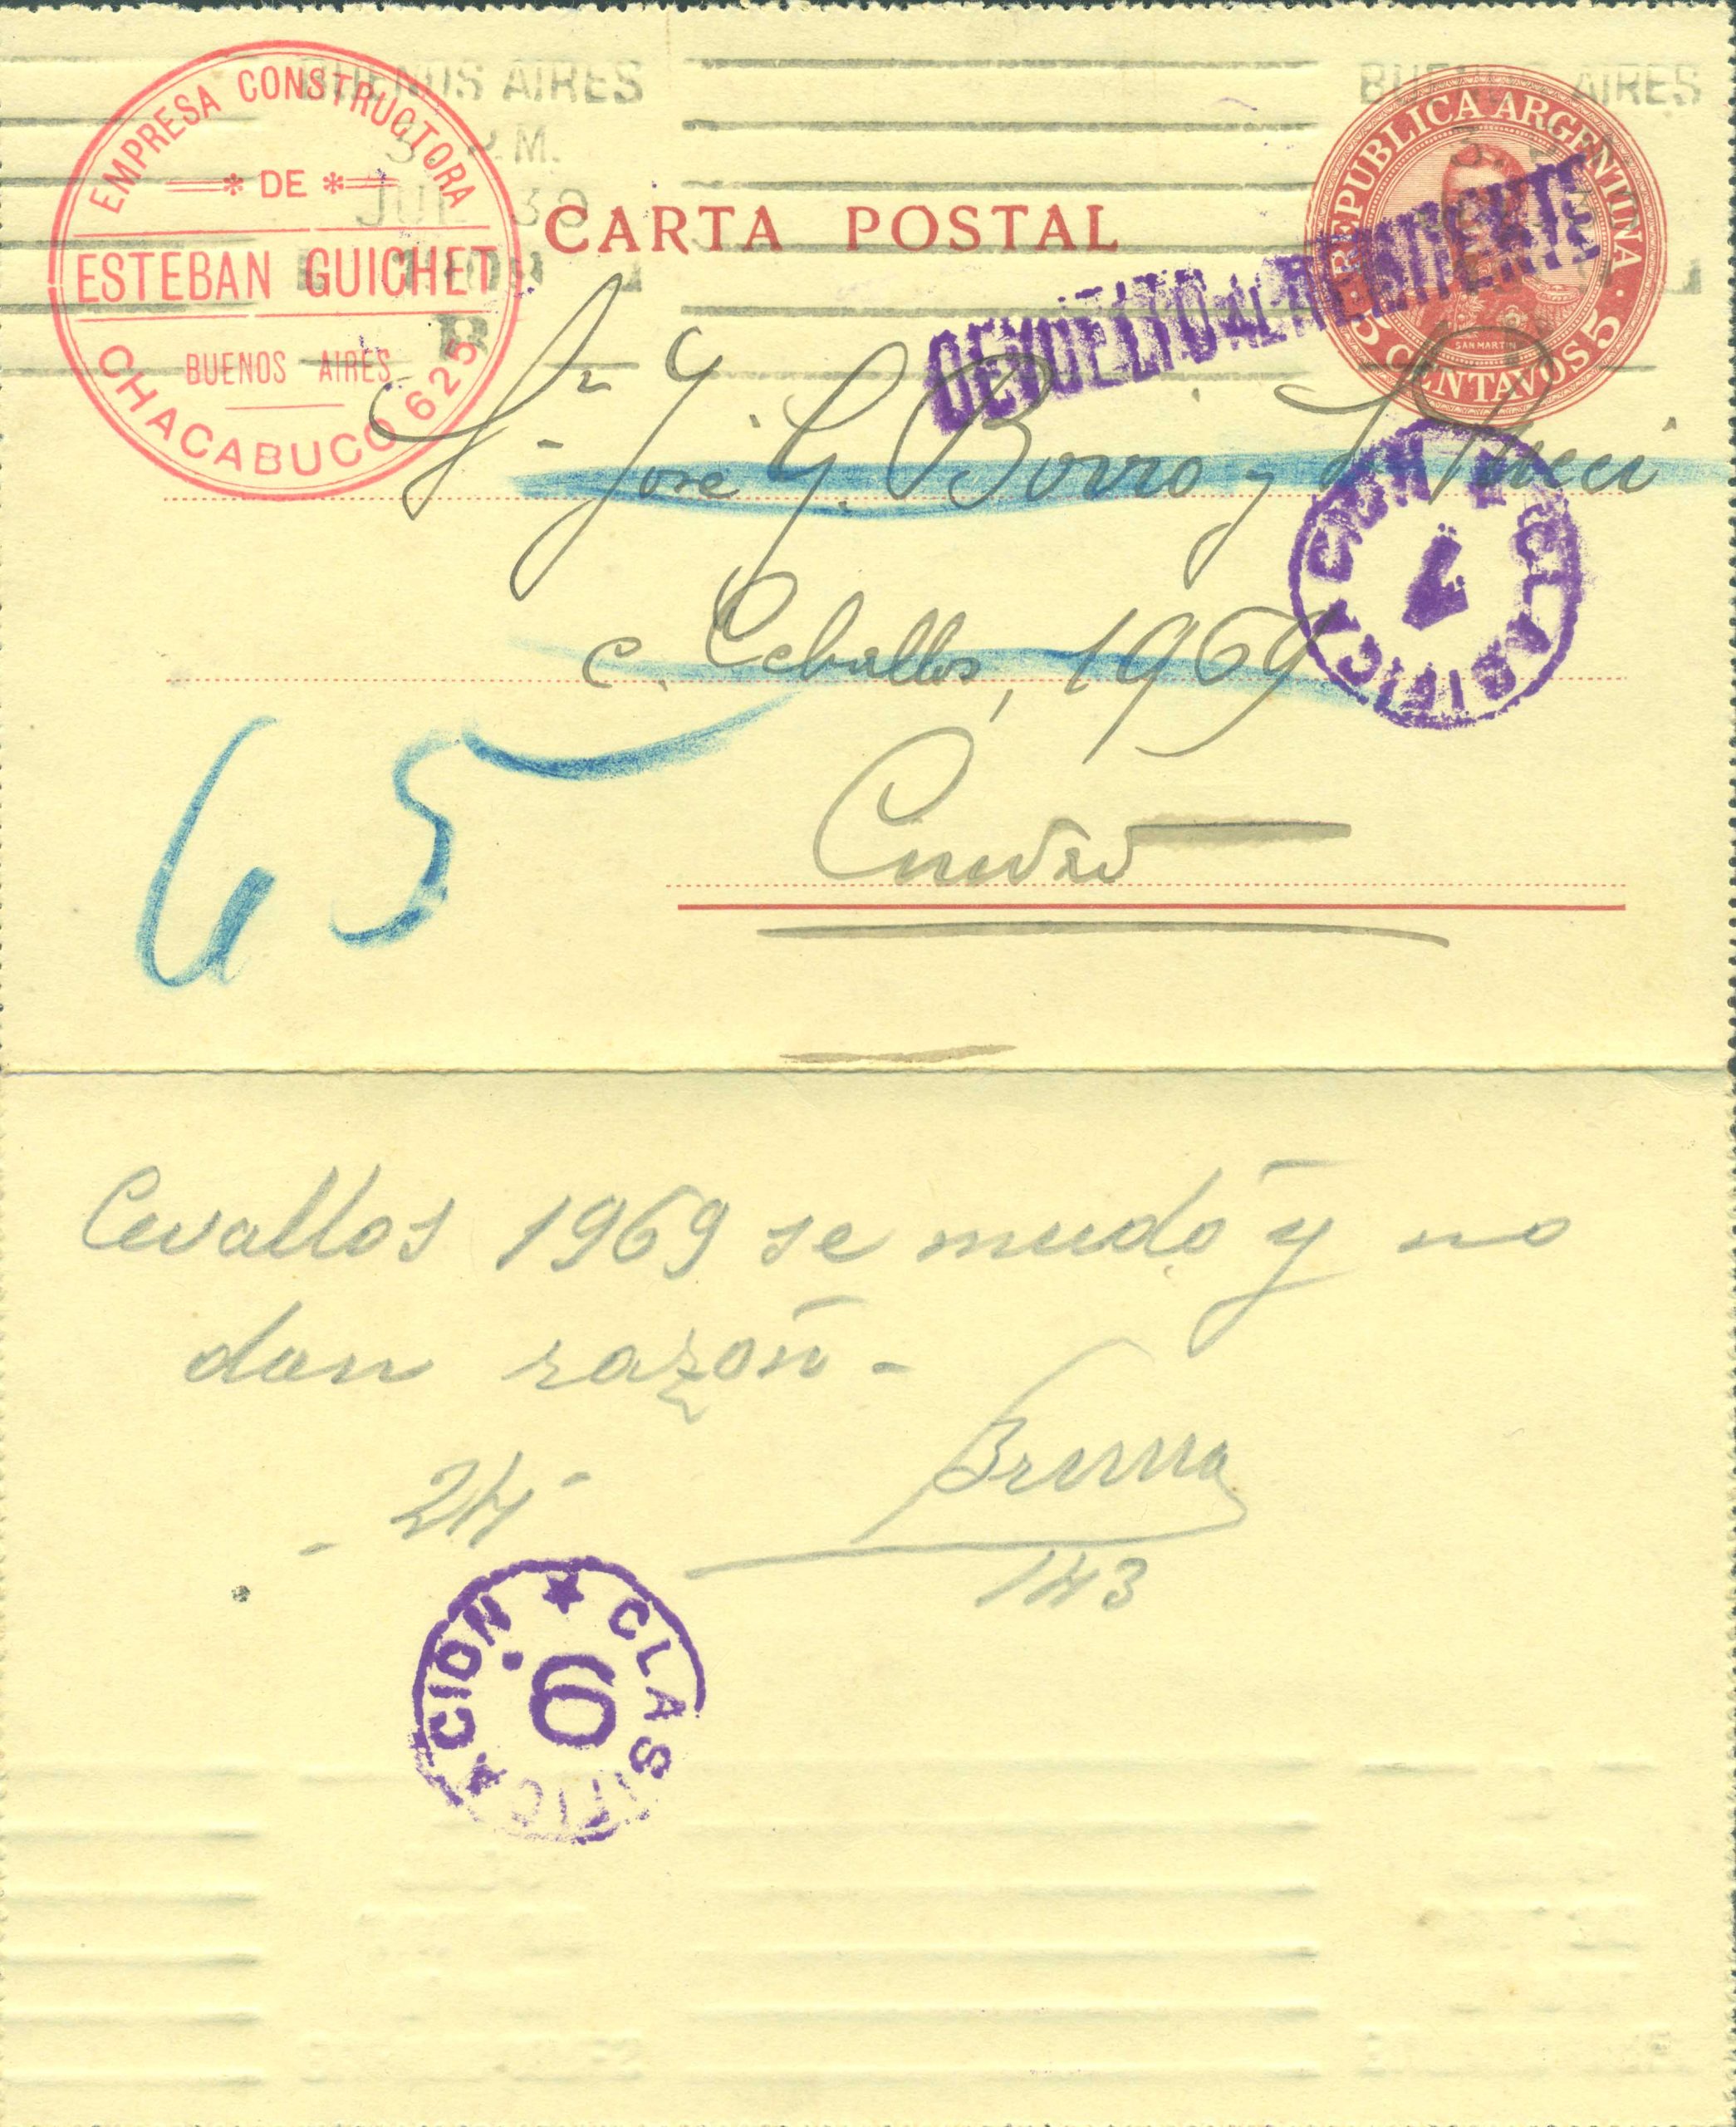 EMPRESA CONSTRUCTORA
DE
ESTEBAN GUICHET
BUENOS AIRES
CHACABUCO 625
BUENOS AIRES
M.
JUL 30
B
CARTA POSTAL
BUENOS AIRES
REPUBLICA ARGENTINA
SAN MARTIN
5 CENTAVOS 5
DEVUELTO AL REMITENTE
José G. Borro y
c. Ceballos, 1969
CLASIFICACION
7
65
Cevallos 1969 se mudó y no
dan razón -
- 24 -
143
CLASIFICACION
6